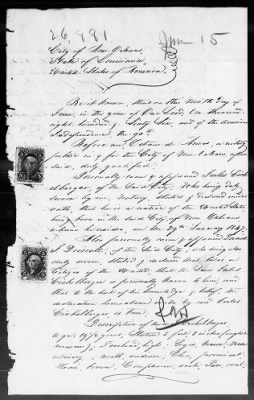 26,881
June 15
City of New Orleans,
State of Louisiana,
United States of America.
Be it Known, that on this Ninth day of
June, in the year of Our Lord, One thousand
eight hundred & Sixty Six and of the American
Independence, the 90th
Before me, Edwin de Armas, a notary
public in & for the City of New Orleans afore
said, duly qualified
Personally came & appeared Jules
of the Said City. Who being duly
sworn by me, Notary, states & declares under
oath, that he is a native of the United States
being born in the said City of New Orleans
where he resides, on the 29th January 1847.
Also personally came & appeared
of the Said City, who being also
duly sworn, states & declares that he is a
Citizen of the United, that the Said Jules
is personally known to him, and
that to the best of his knowledge & belief, the
declaration herein above made by said Jules
is true.
Description of
age, 19½ years, Stature 5 feet, inches (english
measure), Forehead, high; Eyes, brown; Nose
ordinary; mouth, medium; Chin, prominent;
Hair, brown; Complexion, dark; Face, oval.